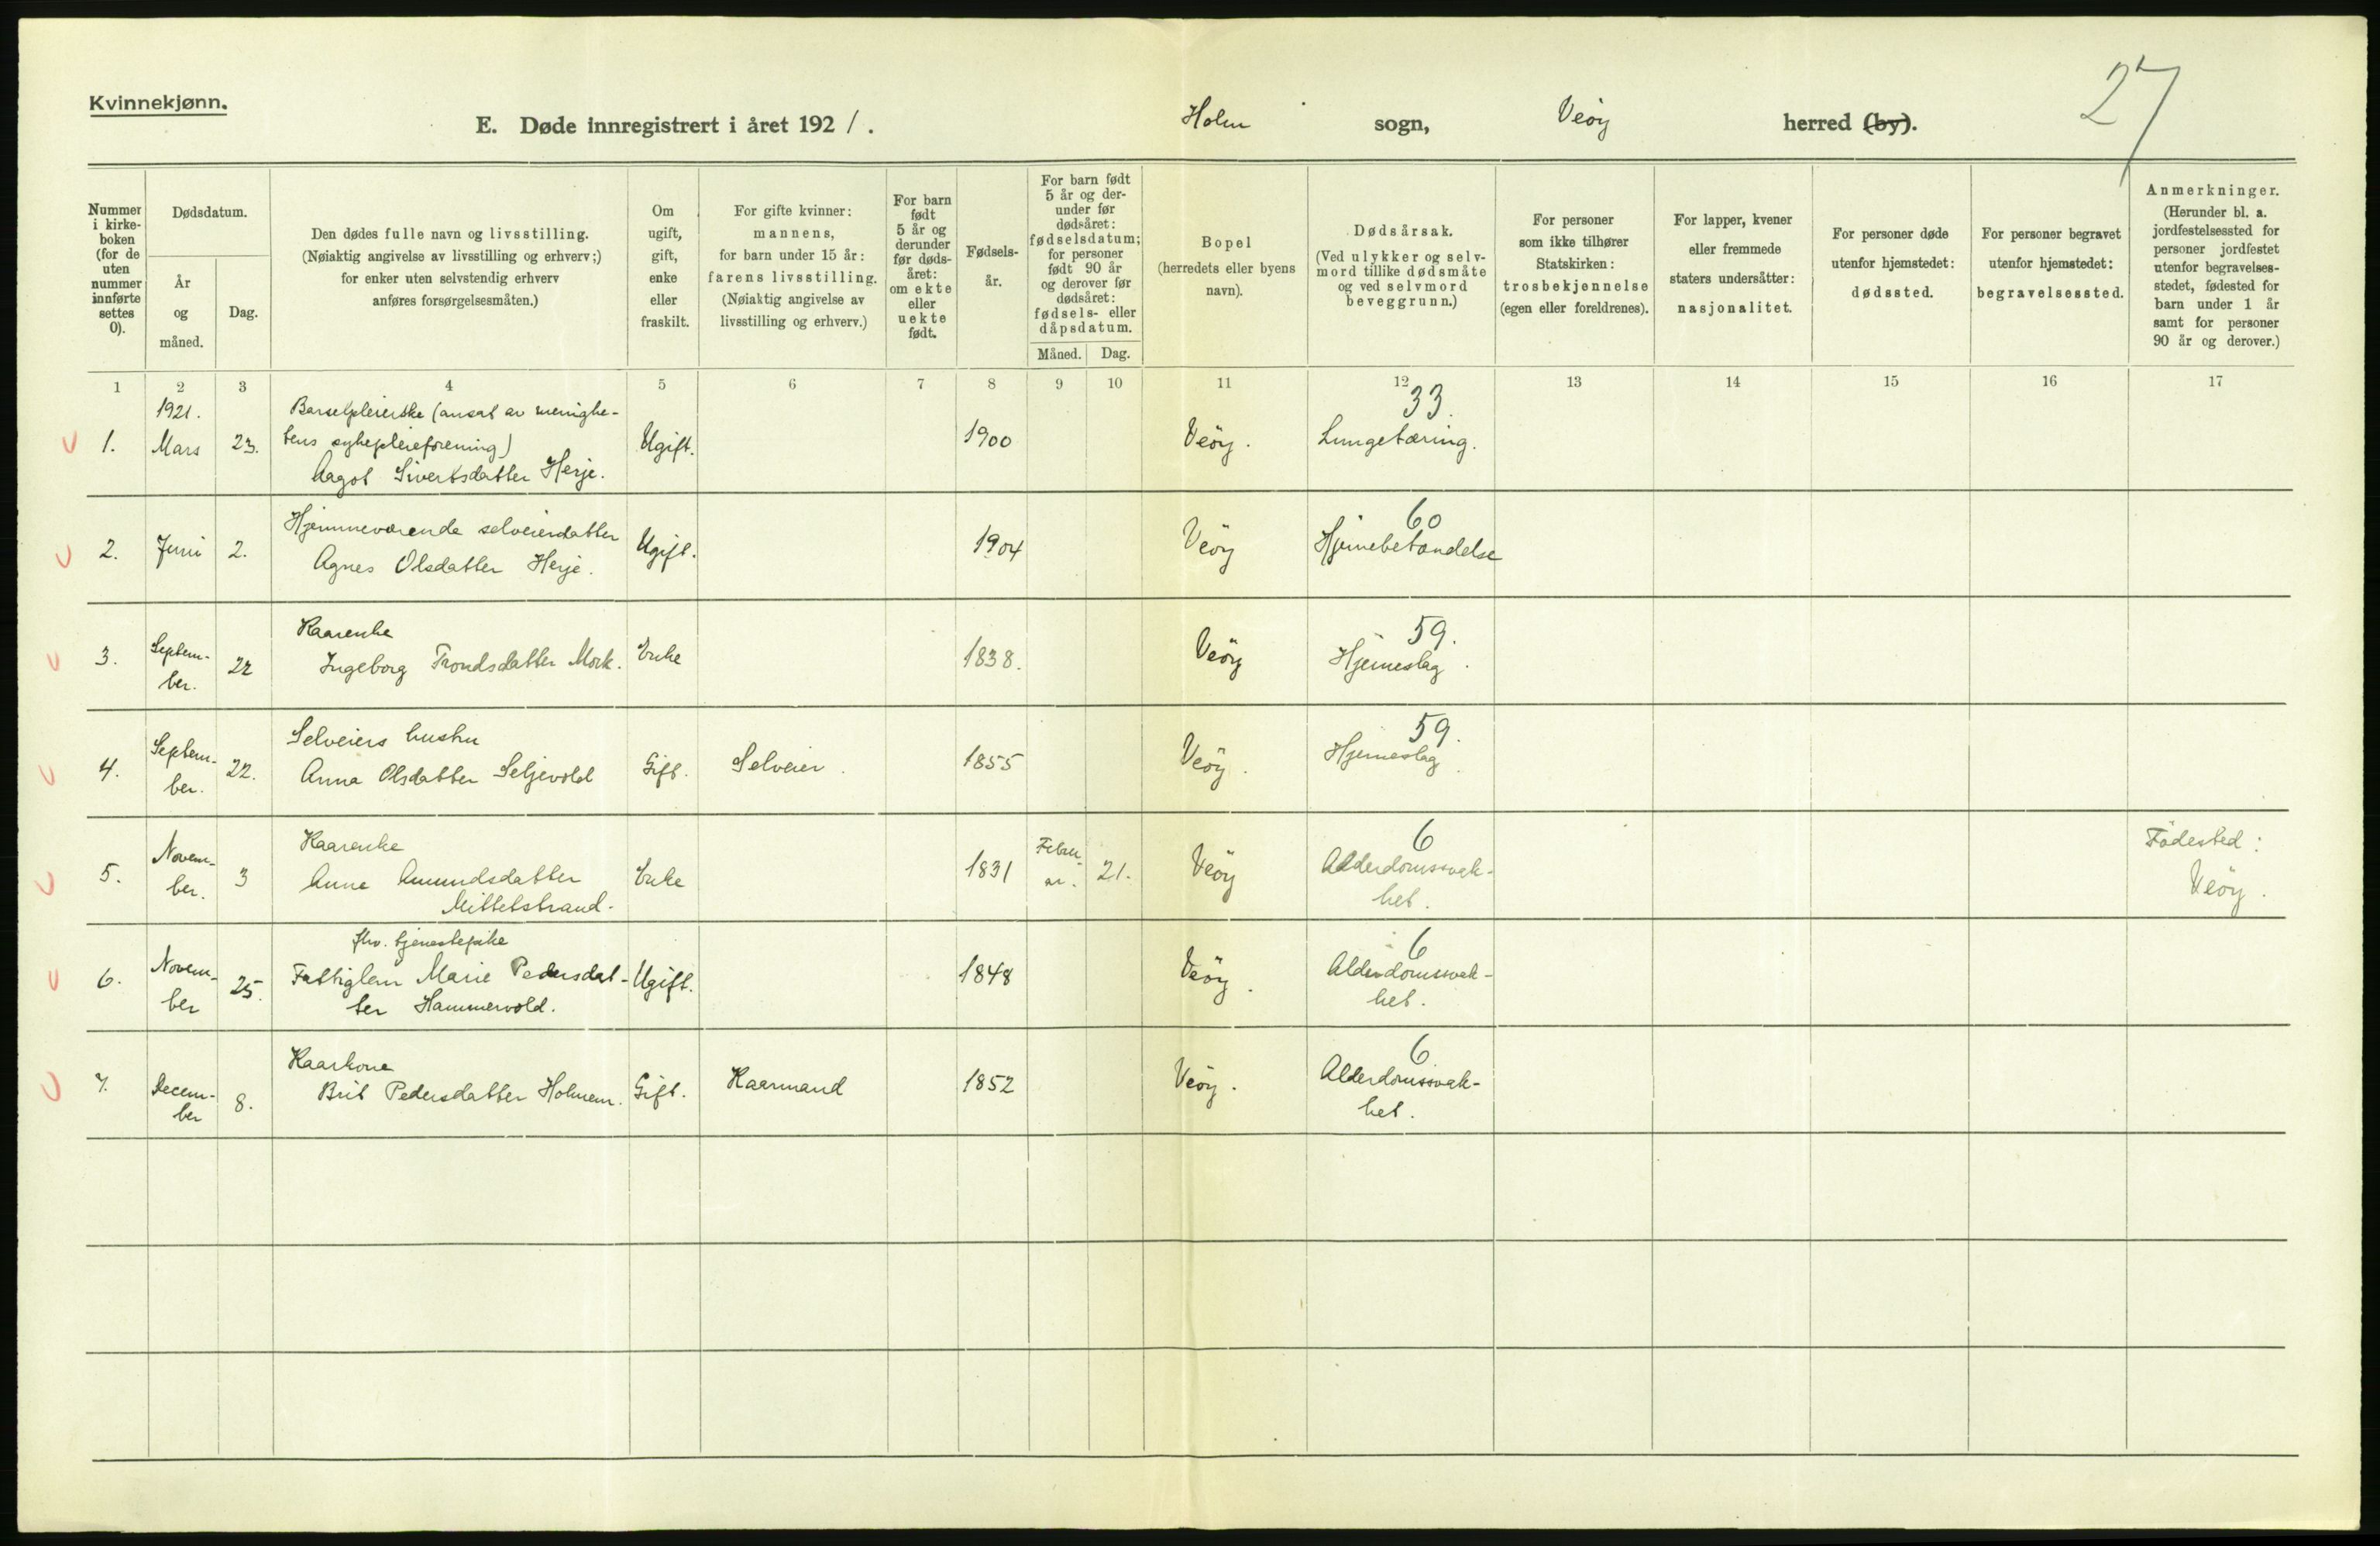 Kvinnekjønn.
E. Døde innregistrert i året 1921. Holm sogn, Veöy herred (by).
27
Nummer i kirke- boken (for de uten nummer innførte settes 0).
Dødsdatum.
År og måned.
Dag.
Den dødes fulle navn og livsstilling.
(Nøiaktig angivelse av livsstilling og erhverv;)
for enker uten selvstendig erhverv
anføres forsørgelsesmåten.)
Om ugift, gift, enke eller fraskilt.
For gifte kvinner:
mannens,
for barn under 15 år:
farens livsstilling.
(Nøiaktig angivelse av
livsstilling og erhverv.)
For barn født 5 år og derunder før døds- året: om ekte eller uekte født.
Fødsels- år.
For barn født 5 år og der- under før dødsåret: fødselsdatum; for personer født 90 år og derover før dødsåret: fødsels- eller dåpsdatum.
Måned. Dag.
Bopel
(herredets eller byens
navn).
Dødsårsak.
(Ved ulykker og selv-
mord tillike dødsmåte
og ved selvmord
beveggrunn.)
For personer
som ikke tilhører
Statskirken:
trosbekjennelse
(egen eller foreldrenes).
For lapper, kvener
eller fremmede
staters undersåtter:
nasjonalitet.
For personer døde
utenfor hjemstedet:
dødssted.
For personer begravet
utenfor hjemstedet:
begravelsessted.
Anmerkninger.
(Herunder bl. a.
jordfestelsessted for
personer jordfestet
utenfor begravelses-
stedet, fødested for
barn under 1 år
samt for personer
90 år og derover.)
1 2 3 4 5 6 7 8 9 10 11 12 13 14 15 16 17
1921. Barselpleierske (ansat av menighe- 33.
1. Mars 23. tens sykepleieforening) Ugift. 1900 Veöy. Lungetæring.
Aagot Sivertsdatter Herje.
Hjemmeværende selveierdatter 60
2. Juni 2. Agnes Olsdatter Herje. Ugift. 1904 Veöy Hjernebetændelse
Kaarenke 59.
3. Septem- ber. 22 Ingeborg Trondsdatter Mork. Enke 1838. Veöy Hjerneslag.
Selveiers hustru 59.
4. Septem- ber. 22. Anna Olsdatter Seljevold Gift. Selveier. 1855 Veöy. Hjerneslag.
Kaarenke 6 Födested:
5. Novem- ber. 3 Anne Amundsdatter Enke 1831 Febru- ar. 21. Veöy Alderdomssvak- het. Veöy.
Mittetstrand.
fhv. tjenestepike 6
6. Novem- ber 25. Fattiglem Marie Pedersdat- Ugift. 1848 Veöy. Alderdomssvak- het.
ter Hammervold.
Kaarkone 6
7. Decem- ber 8. Brit Pedersdatter Holmem. Gift. Kaarmand 1852 Veöy. Alderdomssvak- het.